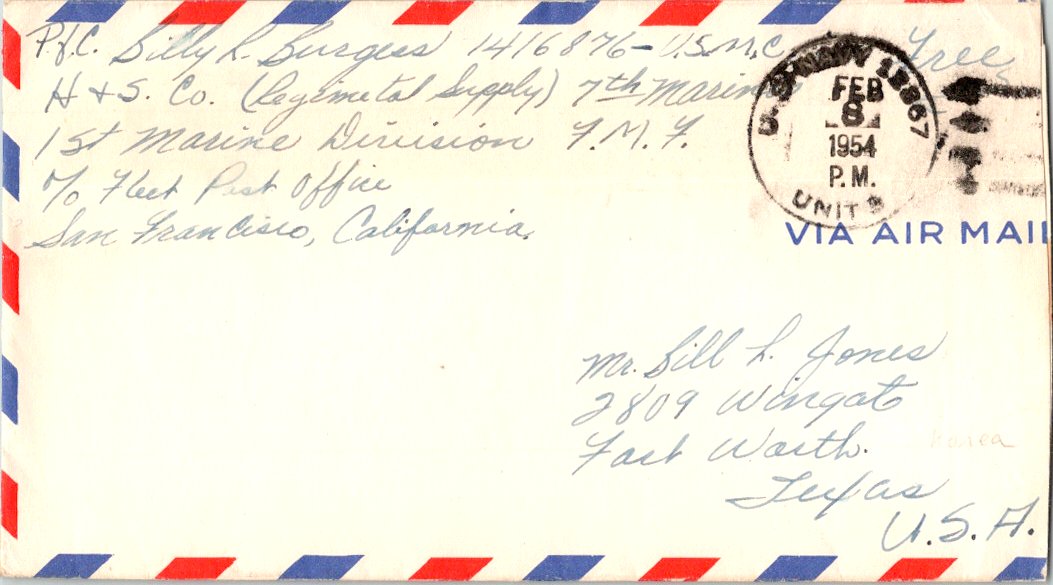 Pfc. Billy L. Burgess 1416876 - U.S.M.C. Free
H & S. Co. (Regimetal Supply) 7th Marines
1st Marine Division F.M.F.
c/o Fleet Post Office
San Francisco, California.
U.S. NAVY 12867
FEB
8
1954
P.M.
UNIT 9
VIA AIR MAIL
Mr. Bill L. Jones
2809 Wingate
Fort Worth.
Korea
Texas
U.S.A.